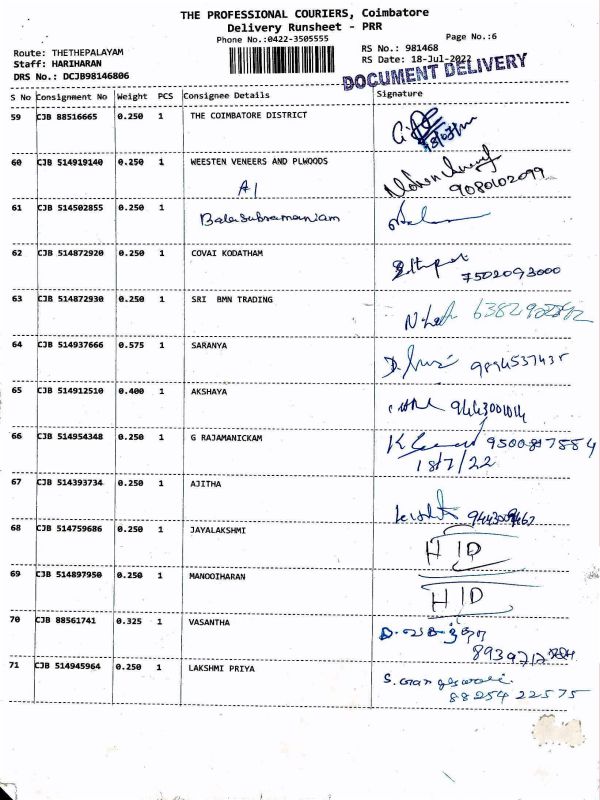 THE PROFESSIONAL COURIERS, Coimbatore
Delivery Runsheet - PRR
Phone No.:0422-3505555
Page No.:6
Route: THETHEPALAYAM
RS No.: 981468
Staff: HARIHARAN
RS Date: 18-Jul-2022
DRS No.: DCJB98146806
DOCUMENT DELIVERY
S No Consignment No Weight PCS Consignee Details Signature
59 CJB 88516665 0.250 1 THE COIMBATORE DISTRICT
60 CJB 514919140 0.250 1 WEESTEN VENEERS AND PLWOODS
A1
9080102099
61 CJB 514502855 0.250 1
Balasubramaniam
62 CJB 514872920 0.250 1 COVAI KODATHAM
7502093000
63 CJB 514872930 0.250 1 SRI BMN TRADING
64 CJB 514937666 0.575 1 SARANYA
9894537435
65 CJB 514912510 0.400 1 AKSHAYA
66 CJB 514954348 0.250 1 G RAJAMANICKAM
18/7/22
67 CJB 514393734 0.250 1 AJITHA
68 CJB 514759686 0.250 1 JAYALAKSHMI
H|D
69 CJB 514897950 0.250 1 MANOOIHARAN
H|D
70 CJB 88561741 0.325 1 VASANTHA
71 CJB 514945964 0.250 1 LAKSHMI PRIYA
88254 22575